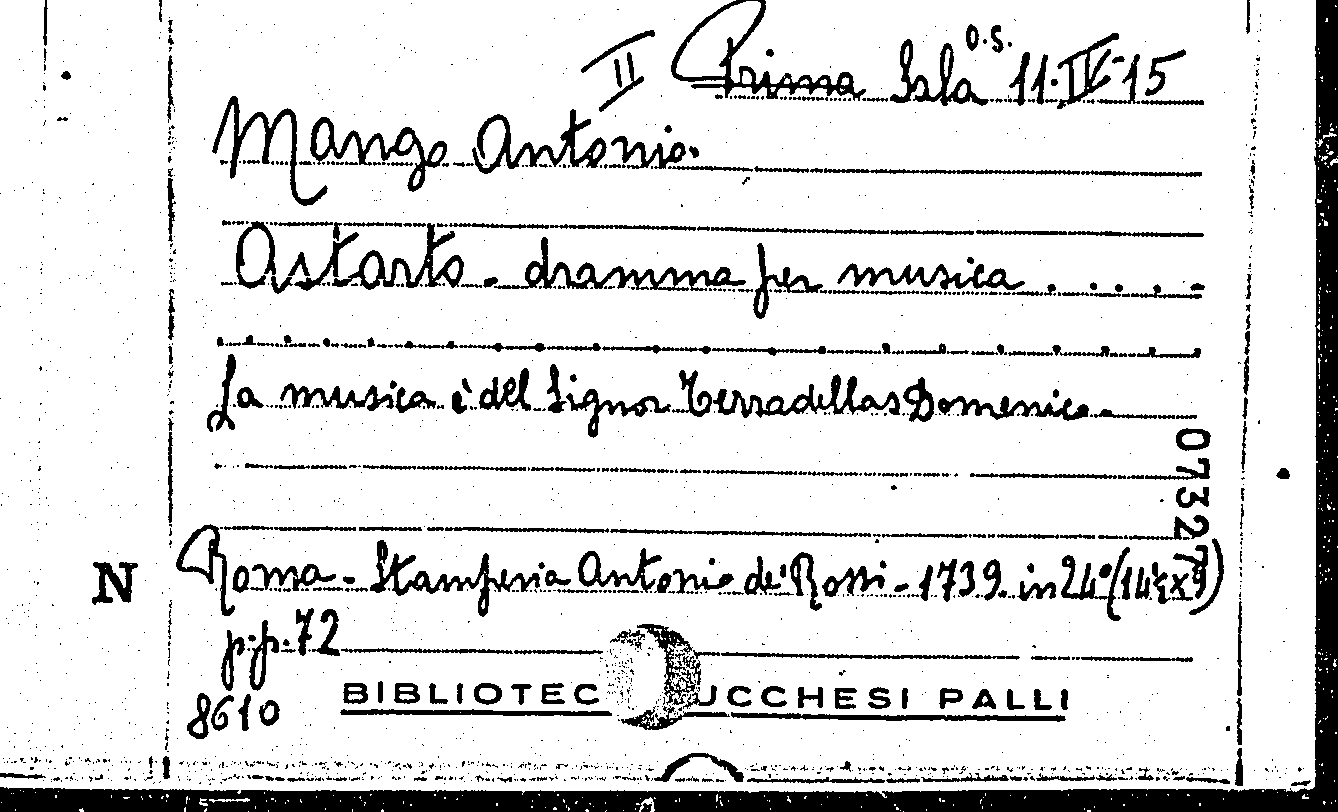 II Prima Sala O.S. 11·IV-15
Mango Antonio.
Astarto - dramma per musica . . . . -
. . . . . . . . . . . . . . . . . . .
La musica è del Signor Terradellas Domenico.
07327
Roma - Stamperia Antonio de' Rossi - 1739. in 24° (14½x9)
N
p.p. 72
8610
BIBLIOTEC UCCHESI PALLI